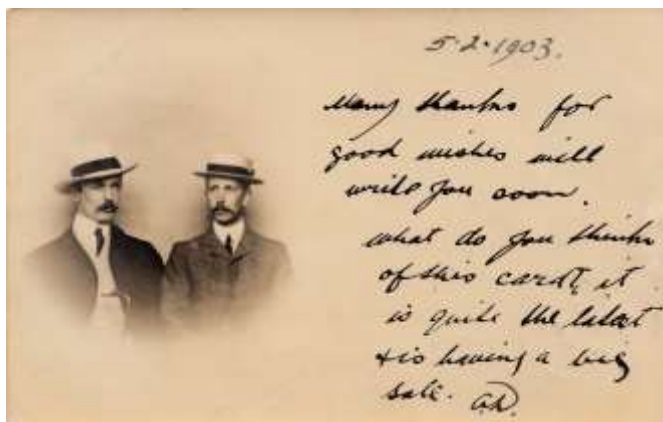 5·2·1903.
Many thanks for
good wishes will
write you soon.
what do you think
of this card, it
is quite the latest
& is having a big
sale.